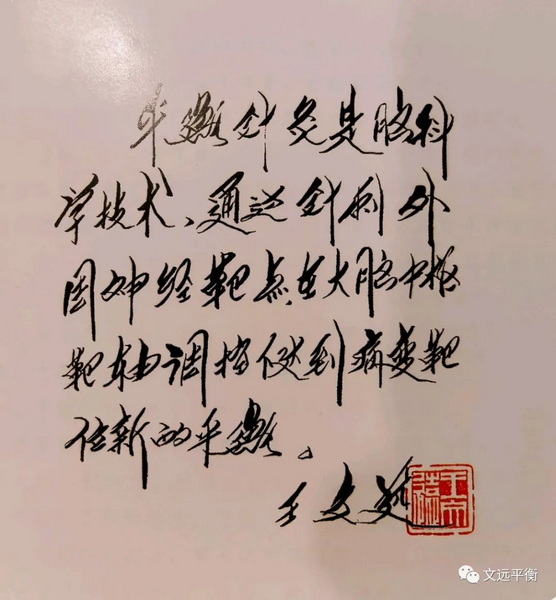 平衡针灸是脑科
学技术、通过针刺外
周神经靶点在大脑中枢
靶轴调控使到病变靶
位新的平衡。
王文远
文远平衡